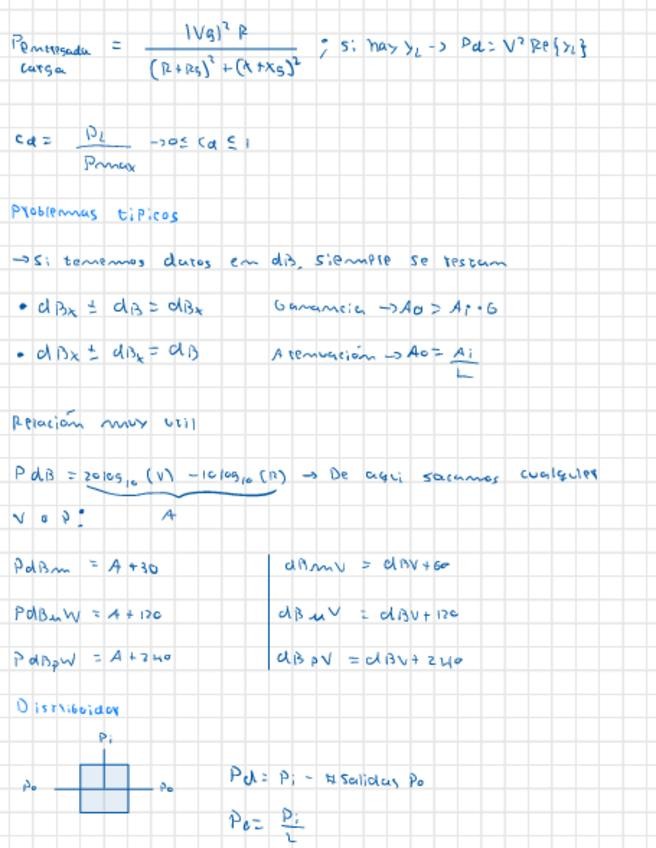 Pentregada carga = |Vg|² R / (R+Rg)² + (X+Xg)² ; si hay YL -> Pd = V² Re{YL}
Cd = PL / Pmax -> 0 ≤ Cd ≤ 1
Problemas tipicos
→ Si tenemos datos en dB, siempre se restan
• dBx ± dB = dBx Ganancia → Ao = Ai · G
• dBx ± dBx = dB Atenuación → Ao = Ai / L
Relación muy util
PdB = 20log10 (V) - 10log10 (R) → De aqui sacamos cualquier
V o P: A
PdBm = A + 30 dBmV = dBV + 60
PdBuW = A + 120 dBuV = dBV + 120
PdBpW = A + 240 dBpV = dBV + 240
Distribuidor
Pi
Po Po
Pd = Pi - # salidas Po
Pi / L